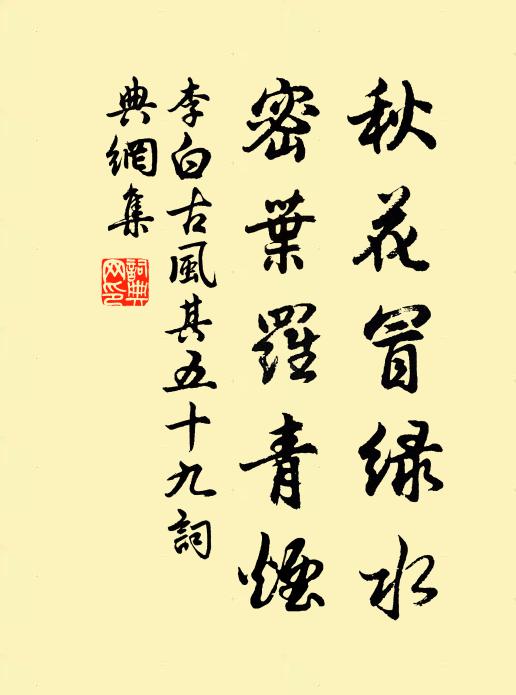 秋花冒绿水
密葉羅青煙
李白古風其五十九詞
典網集
詞典網印